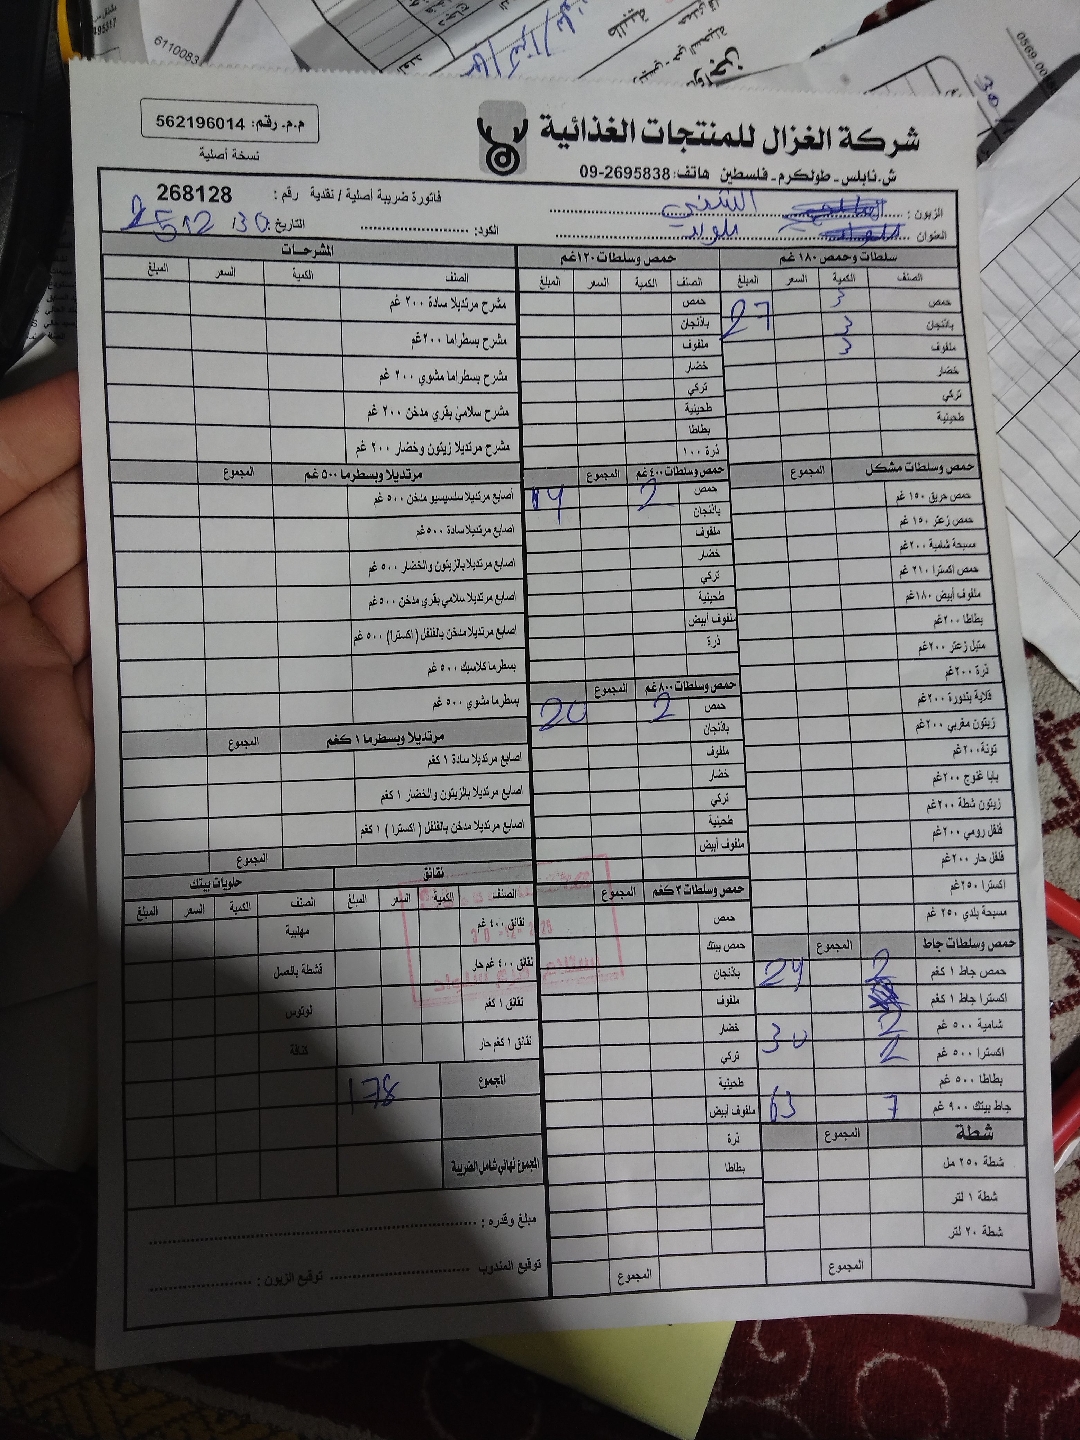 شركة الغزال للمنتجات الغذائية
ش.نابلس - طولكرم - فلسطين هاتف: 09-2695838
م.م. رقم: 562196014
نسخة أصلية
فاتورة ضريبة أصلية / نقدية رقم: 268128
الزبون:
العنوان
الكود:
التاريخ: 30
سلطات وحمص ١٨٠ غم
الصنف الكمية السعر المبلغ
حمص 3 27
باذنجان 3
ملفوف 3
خضار
تركي
طحينية
حمص وسلطات مشكل المجموع
حمص حريق ١٥٠ غم
حمص زعتر ١٥٠ غم
مسبحة شامية ٢٠٠غم
حمص اكسترا ٢١٠ غم
ملفوف أبيض ١٨٠غم
بطاطا ٢٠٠غم
متبل زعتر ٢٠٠غم
ذرة ٢٠٠غم
قلاية بندورة ٢٠٠غم
زيتون مغربي ٢٠٠غم
تونة٢٠٠غم
بابا غنوج ٢٠٠غم
زيتون شطة ٢٠٠غم
فلفل رومي ٢٠٠غم
فلفل حار ٢٠٠غم
اكسترا ٢٥٠غم
مسبحة بلدي ٢٥٠ غم
حمص وسلطات جاط المجموع
حمص جاط ١ كغم 2 24
اكسترا جاط ١ كغم
شامية ٥٠٠ غم 2 30
اكسترا ٥٠٠ غم 2
بطاطا ٥٠٠ غم
جاط بيتك ٩٠٠ غم 7 63
شطة المجموع
شطة ٢٥٠ مل
شطة ١ لتر
شطة ٢٠ لتر
المجموع
حمص وسلطات ١٢٠غم
الصنف الكمية السعر المبلغ
حمص
باذنجان
ملفوف
خضار
تركي
طحينية
بطاطا
ذرة ١٠٠
حمص وسلطات ٤٠٠غم المجموع
حمص 2 14
باذنجان
ملفوف
خضار
تركي
طحينية
ملفوف أبيض
ذرة
حمص وسلطات ٨٠٠غم المجموع
حمص 2 20
باذنجان
ملفوف
خضار
تركي
طحينية
ملفوف أبيض
حمص وسلطات ٣كغم المجموع
حمص
حمص بيتك
باذنجان
ملفوف
خضار
تركي
طحينية
ملفوف أبيض
ذرة
بطاطا
المجموع
المشرحات
الصنف الكمية السعر المبلغ
مشرح مرتديلا سادة ٢٠٠ غم
مشرح بسطراما ٢٠٠غم
مشرح بسطراما مشوي ٢٠٠ غم
مشرح سلامي بقري مدخن ٢٠٠ غم
مشرح مرتديلا زيتون وخضار ٢٠٠ غم
مرتديلا وبسطرما ٥٠٠ غم المجموع
أصابع مرتديلا سلسيسيو مدخن ٥٠٠ غم
أصابع مرتديلا سادة ٥٠٠غم
أصابع مرتديلا بالزيتون والخضار ٥٠٠ غم
أصابع مرتديلا سلامي بقري مدخن ٥٠٠غم
أصابع مرتديلا مدخن بالفلفل (اكسترا) ٥٠٠ غم
بسطرما كلاسيك ٥٠٠ غم
بسطرما مشوي ٥٠٠ غم
مرتديلا وبسطرما ١ كغم المجموع
أصابع مرتديلا سادة ١ كغم
أصابع مرتديلا بالزيتون والخضار ١ كغم
أصابع مرتديلا مدخن بالفلفل (اكسترا) ١ كغم
المجموع
نقانق
الصنف الكمية السعر المبلغ
نقانق ٤٠٠ غم
نقانق ٤٠٠ غم حار
نقانق ١ كغم
نقانق ١ كغم حار
حلويات بيتك
الصنف الكمية السعر المبلغ
مهلبية
قشطة بالعسل
لوتوس
كنافة
المجموع 178
المجموع نهائي شامل الضريبة
مبلغ وقدره:
توقيع المندوب
توقيع الزبون:
6110083